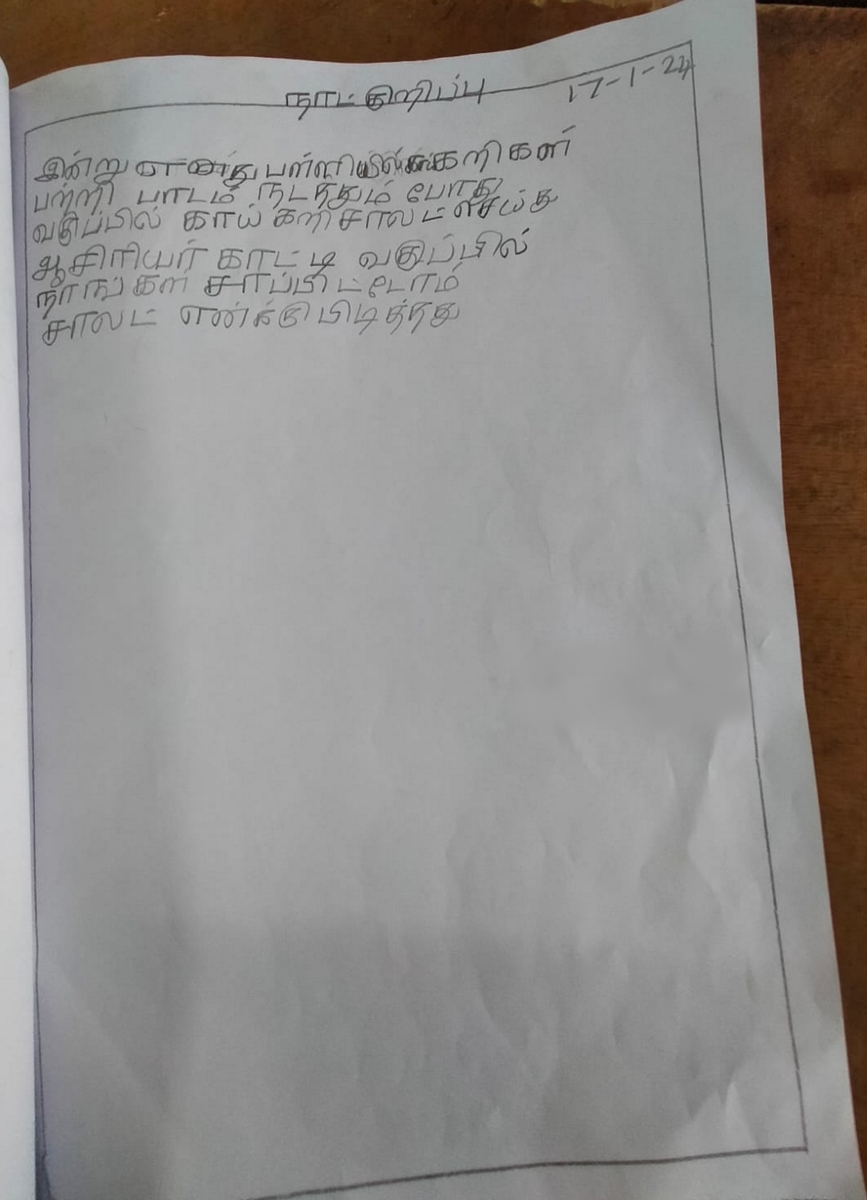 நாட்குறிப்பு 17-1-24
இன்று எனது பள்ளியில் கறிகள்
பற்றி பாடம் நடத்தும் போது
வகுப்பில் காய் கறி சாலட் செய்து
ஆசிரியர் காட்டி வகுப்பில்
நாங்கள் சாப்பிட்டோம்
சாலட் எனக்கு பிடித்தது